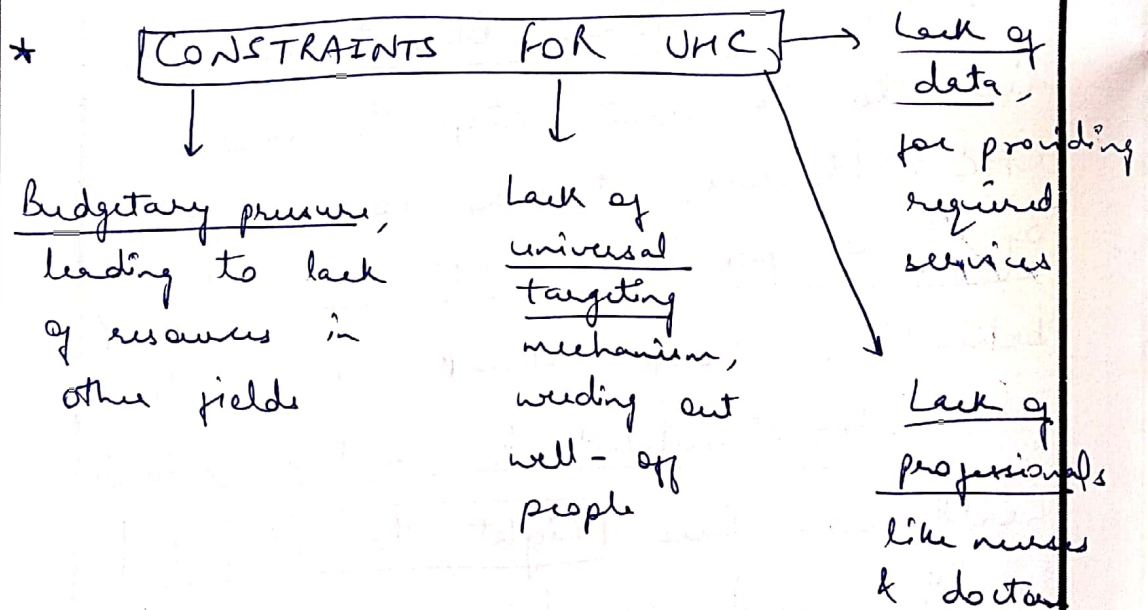 * CONSTRAINTS FOR UHC
Budgetary pressure,
leading to lack
of resources in
other fields
Lack of
universal
targeting
mechanism,
weeding out
well-off
people
Lack of
data,
for providing
required
services
Lack of
professionals
like nurses
& doctors